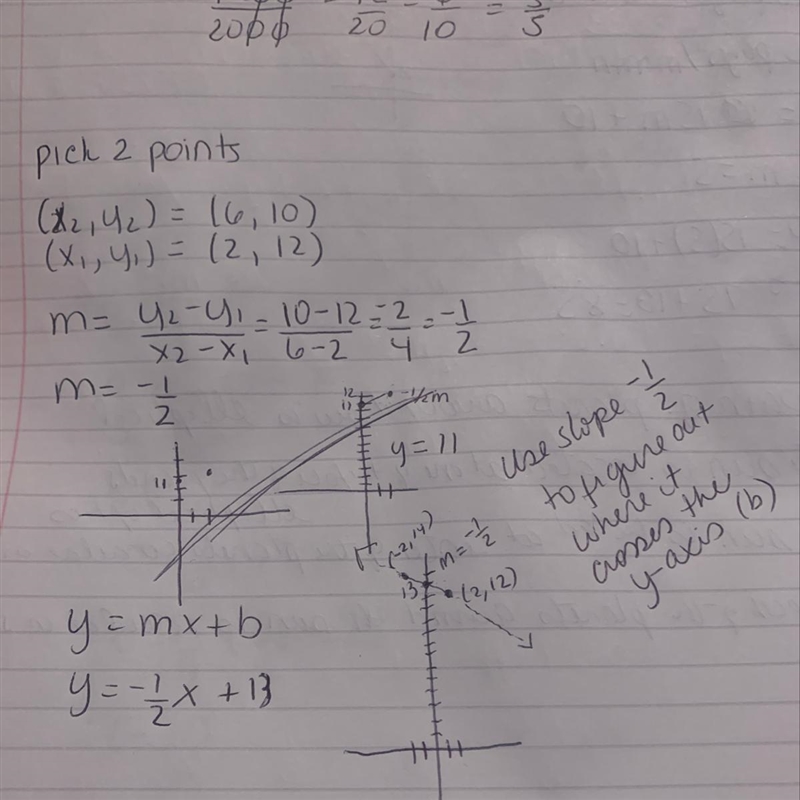 2000 20 10 5
pick 2 points
(x2, y2) = (6, 10)
(x1, y1) = (2, 12)
m = y2 - y1 / x2 - x1 = 10 - 12 / 6 - 2 = -2/4 = -1/2
m = -1/2
12
11
-1/2 m
y = 11
11
use slope -1/2
to figure out
where it
crosses the
y-axis (b)
(-2, 14)
m = -1/2
13
(2, 12)
y = mx + b
y = -1/2 x + 13